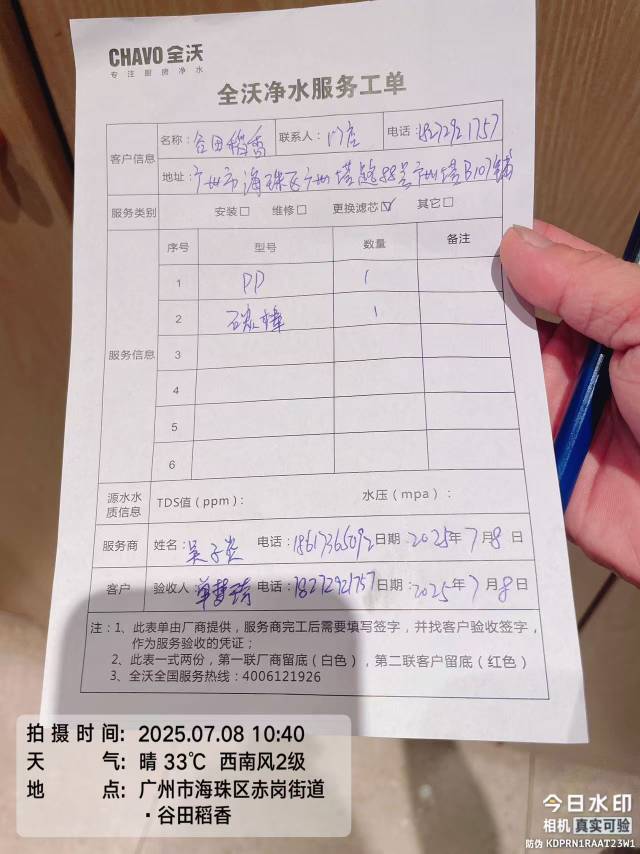 CHAVO 全沃
专注厨房净水
全沃净水服务工单
客户信息
名称: 谷田稻香 联系人: 门店 电话: 18272921757
地址: 广州市海珠区广州塔 88号广州塔B107铺
服务类别 安装□ 维修□ 更换滤芯☑ 其它□
服务信息
序号 型号 数量 备注
1 PP 1
2 碳棒 1
3
4
5
6
源水水质信息 TDS值(ppm): 水压(mpa):
服务商 姓名: 吴子 电话: 18617365092 日期: 2025年7月8日
客户 验收人: 单 琦 电话: 18272921757 日期: 2025年7月8日
注:1、此表单由厂商提供,服务商完工后需要填写签字,并找客户验收签字,
作为服务验收的凭证;
2、此表一式两份,第一联厂商留底(白色),第二联客户留底(红色)
3、全沃全国服务热线:4006121926
拍摄时间: 2025.07.08 10:40
天气: 晴 33℃ 西南风2级
地点: 广州市海珠区赤岗街道
·谷田稻香
今日水印
相机 真实可验
防伪 KDPRN1RAAT23W1